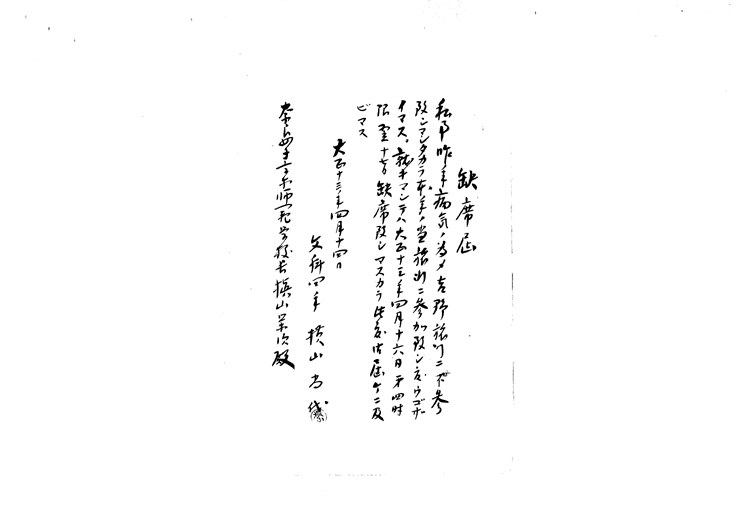 缺席届
私事昨年病気ノ為メ吉野旅行ニ不参
致シマシタカラ本年ノ当旅行ニ参加致シ度ウゴザ
イマス。就キマシテハ大正十三年四月十六日第四時
限 缺席致シマスカラ此段御届ケニ及
ビマス
大正十三年四月十四日
文科四年 横山
奈良女子高等師範学校長槇山栄次殿